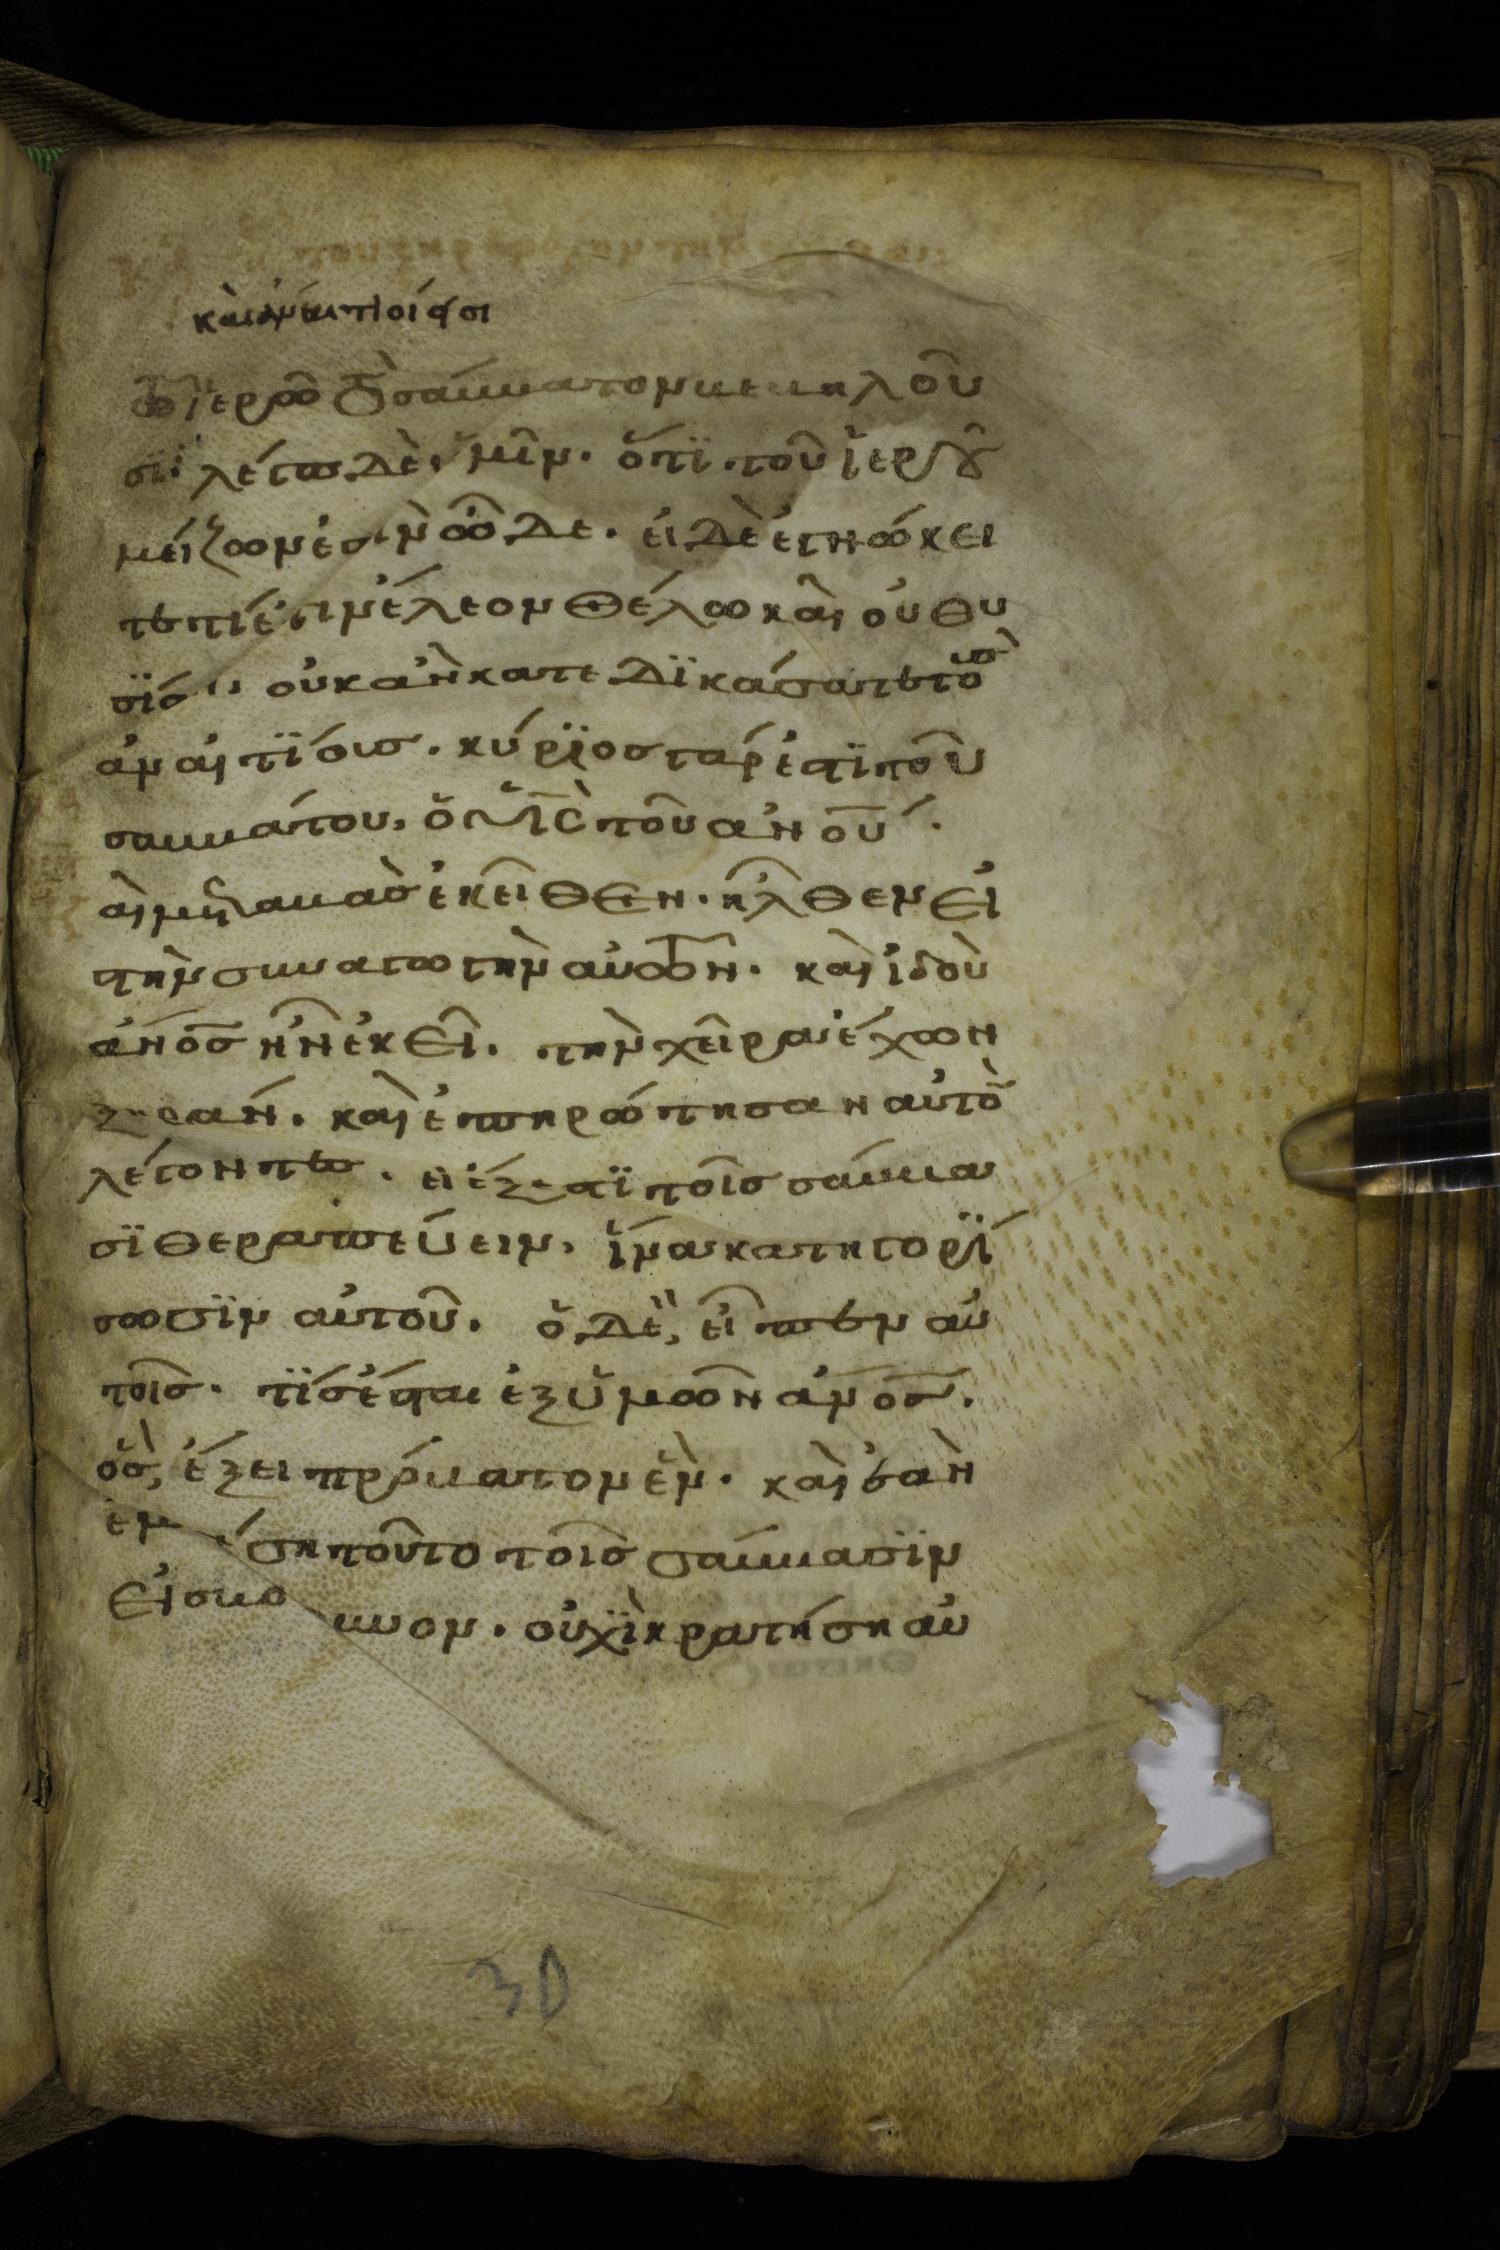 καὶ ἀναίτιοί εἰσι
τῶ ἱερῶ τὸ σάββατον βεβηλοῦ
σϊ· λέγω δὲ ὑμῖν· ὅτϊ τοῦ ἱεροῦ
μείζων ἐστὶν ὧδε· εἰ δὲ ἐγνώκει
τε τί ἐστιν ἔλεον θέλω καὶ οὐ θυ
σΐαν οὐκ ἂν κατεδϊκάσατε τοὺσ
ἀναιτΐουσ· κύρϊοσ γάρ ἐστϊ τοῦ
σαββάτου, ὁ υἱὸσ τοῦ ἀνου·
αὶ μεταβὰσ ἐκεῖθεν· ἦλθεν εἰ
τὴν συναγωγὴν αὐτῶν· καὶ ἰδοὺ
ἄνοσ ἦν ἐκεῖ· τὴν χεῖρα ἔχων
ξηράν· καὶ ἐπηρώτησαν αὐτὸ
λέγοντεσ· εἰ ἔξεστϊ τοῖσ σάββα
σϊ θεραπεύειν· ἵνα κατηγορΐ
σωσϊν αὐτοῦ· ὁ δὲ, εἶπεν αὐ
τοῖσ· τΐσ ἔσται ἐξ ὑμῶν ἄνοσ·
ὃσ, ἕξει πρόβατον ἓν· καὶ ἐὰν
ἐμπέση τοῦτο τοῖσ σάββασϊν
εἰσ βόθυνον· οὐχῒ κρατήση αὐ
30